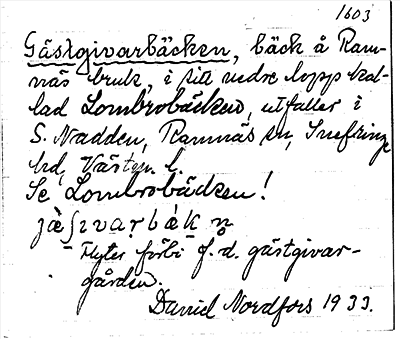 1603
Gästgivarbäcken, bäck å Ram-
näs bruk, i sitt nedre lopp kal-
lad Lombrobäcken, utfaller i
S. Nadden, Ramnäs sn, Snefringe
hd, Västm. l.
Se Lombrobäcken!
flyter förbi f.d. gästgivar-
gården.
David Nordfors 1933.